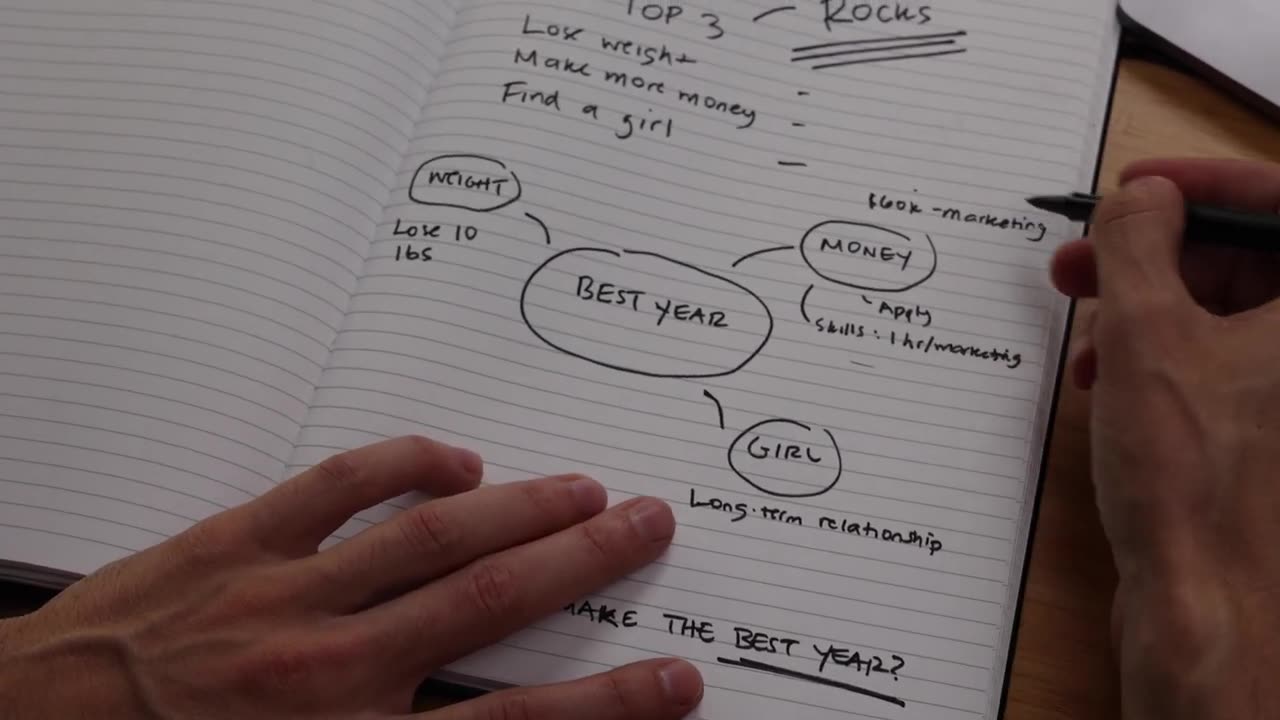 TOP 3 — ROCKS
Lose weight
Make more money
Find a girl
-
-
-
WEIGHT
Lose 10
lbs
BEST YEAR
$60k - marketing
MONEY
- Apply
Skills: 1 hr/marketing
GIRL
Long-term relationship
MAKE THE BEST YEAR?